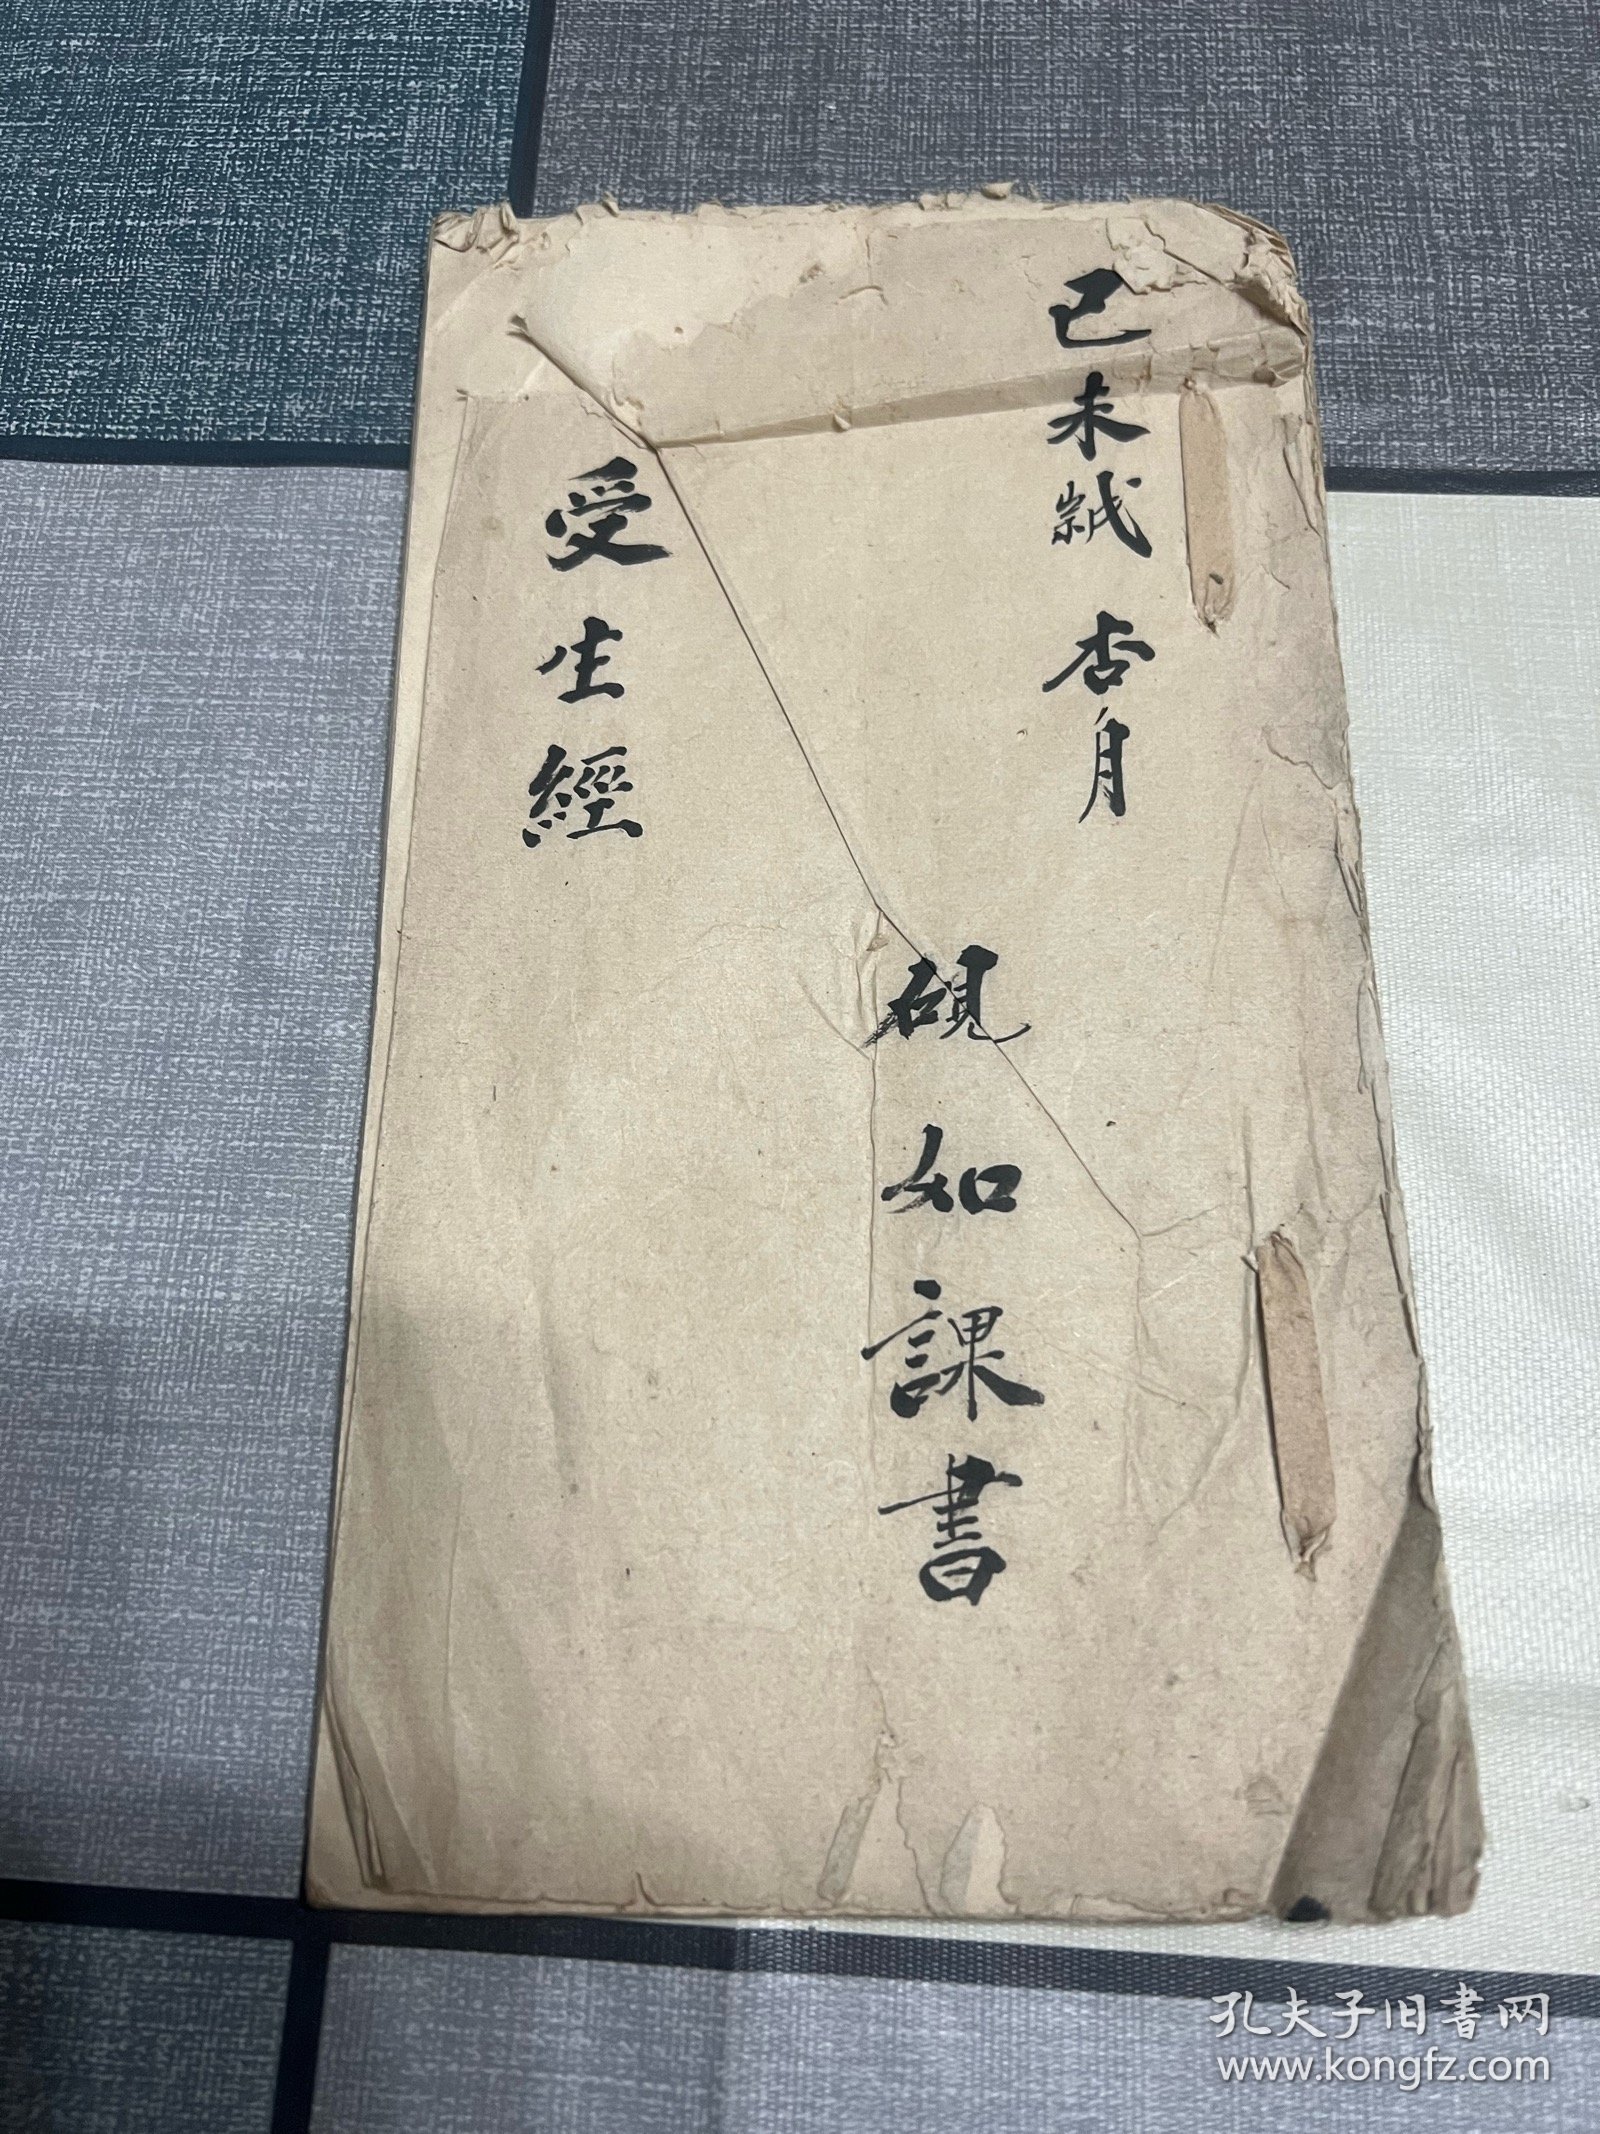 己未 杏月
硯如課書
受生經
孔夫子旧書网
www.kongfz.com